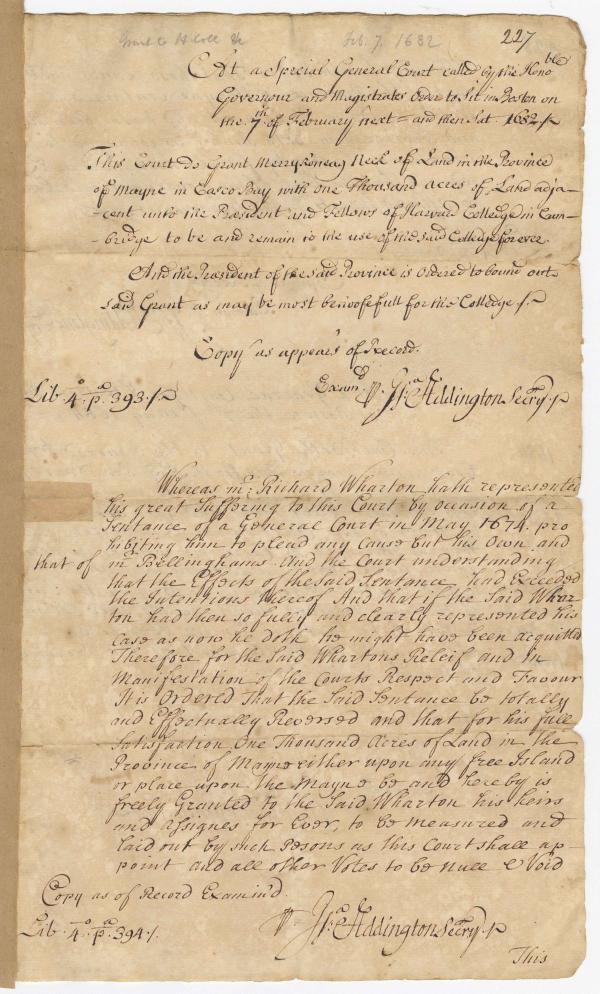 Grant to H Coll &c Feb. 7. 1682 227
At a Special General Court called by the Honoble
Governour and Magistrates Order to Sit in Boston on
the 7th of February next = and then Sat. 1682 /.
This Court Do Grant Merryconeag Neck of Land in the Province
of Mayne in Casco Bay with one Thousand acres of Land adja-
-cent unto the Præsident and Fellows of Harvard Colledge in Cam-
-bridge to be and remain to the use of the said Colledge forever.
And the Præsident of the said Province is Ordered to bound out
said Grant as may be most behoofefull for the Colledge /.
Copy as appears of Record.
Examd
Lib. 4o. pa. 393 /. p. Jsa. Addington Secry. /
Whereas mr. Richard Wharton hath represented
his great Suffering to this Court by occasion of a
Sentance of a General Court in May 1674. pro
hibiting him to plead any Cause but his Own and
that of mr Bellinghams. And the Court understanding
that the Effects of the said Sentance had Exceeded
the Intentions thereof And that if the Said Whar-
ton had then so fully and clearly represented his
Case as now he doth he might have been acquitted
Therefore for the Said Whartons Releif and in
Manifestation of the Courts Respect and Favour
It is Ordered That the Said Sentance be totally
and Effectually Reversed and that for his full
Satisfaction One Thousand Acres of Land in the
Province of Mayne either upon any free Island
or place upon the Mayne be and hereby is
freely Granted to the Said Wharton his heirs
and Assignes for Ever, to be measured and
laid out by such Persons as this Court shall ap-
point and all other Votes to be null & Void
Copy as of Record Examin'd
Lib. 4o. pa. 394 /. p. Jsa. Addington Secry. /
This